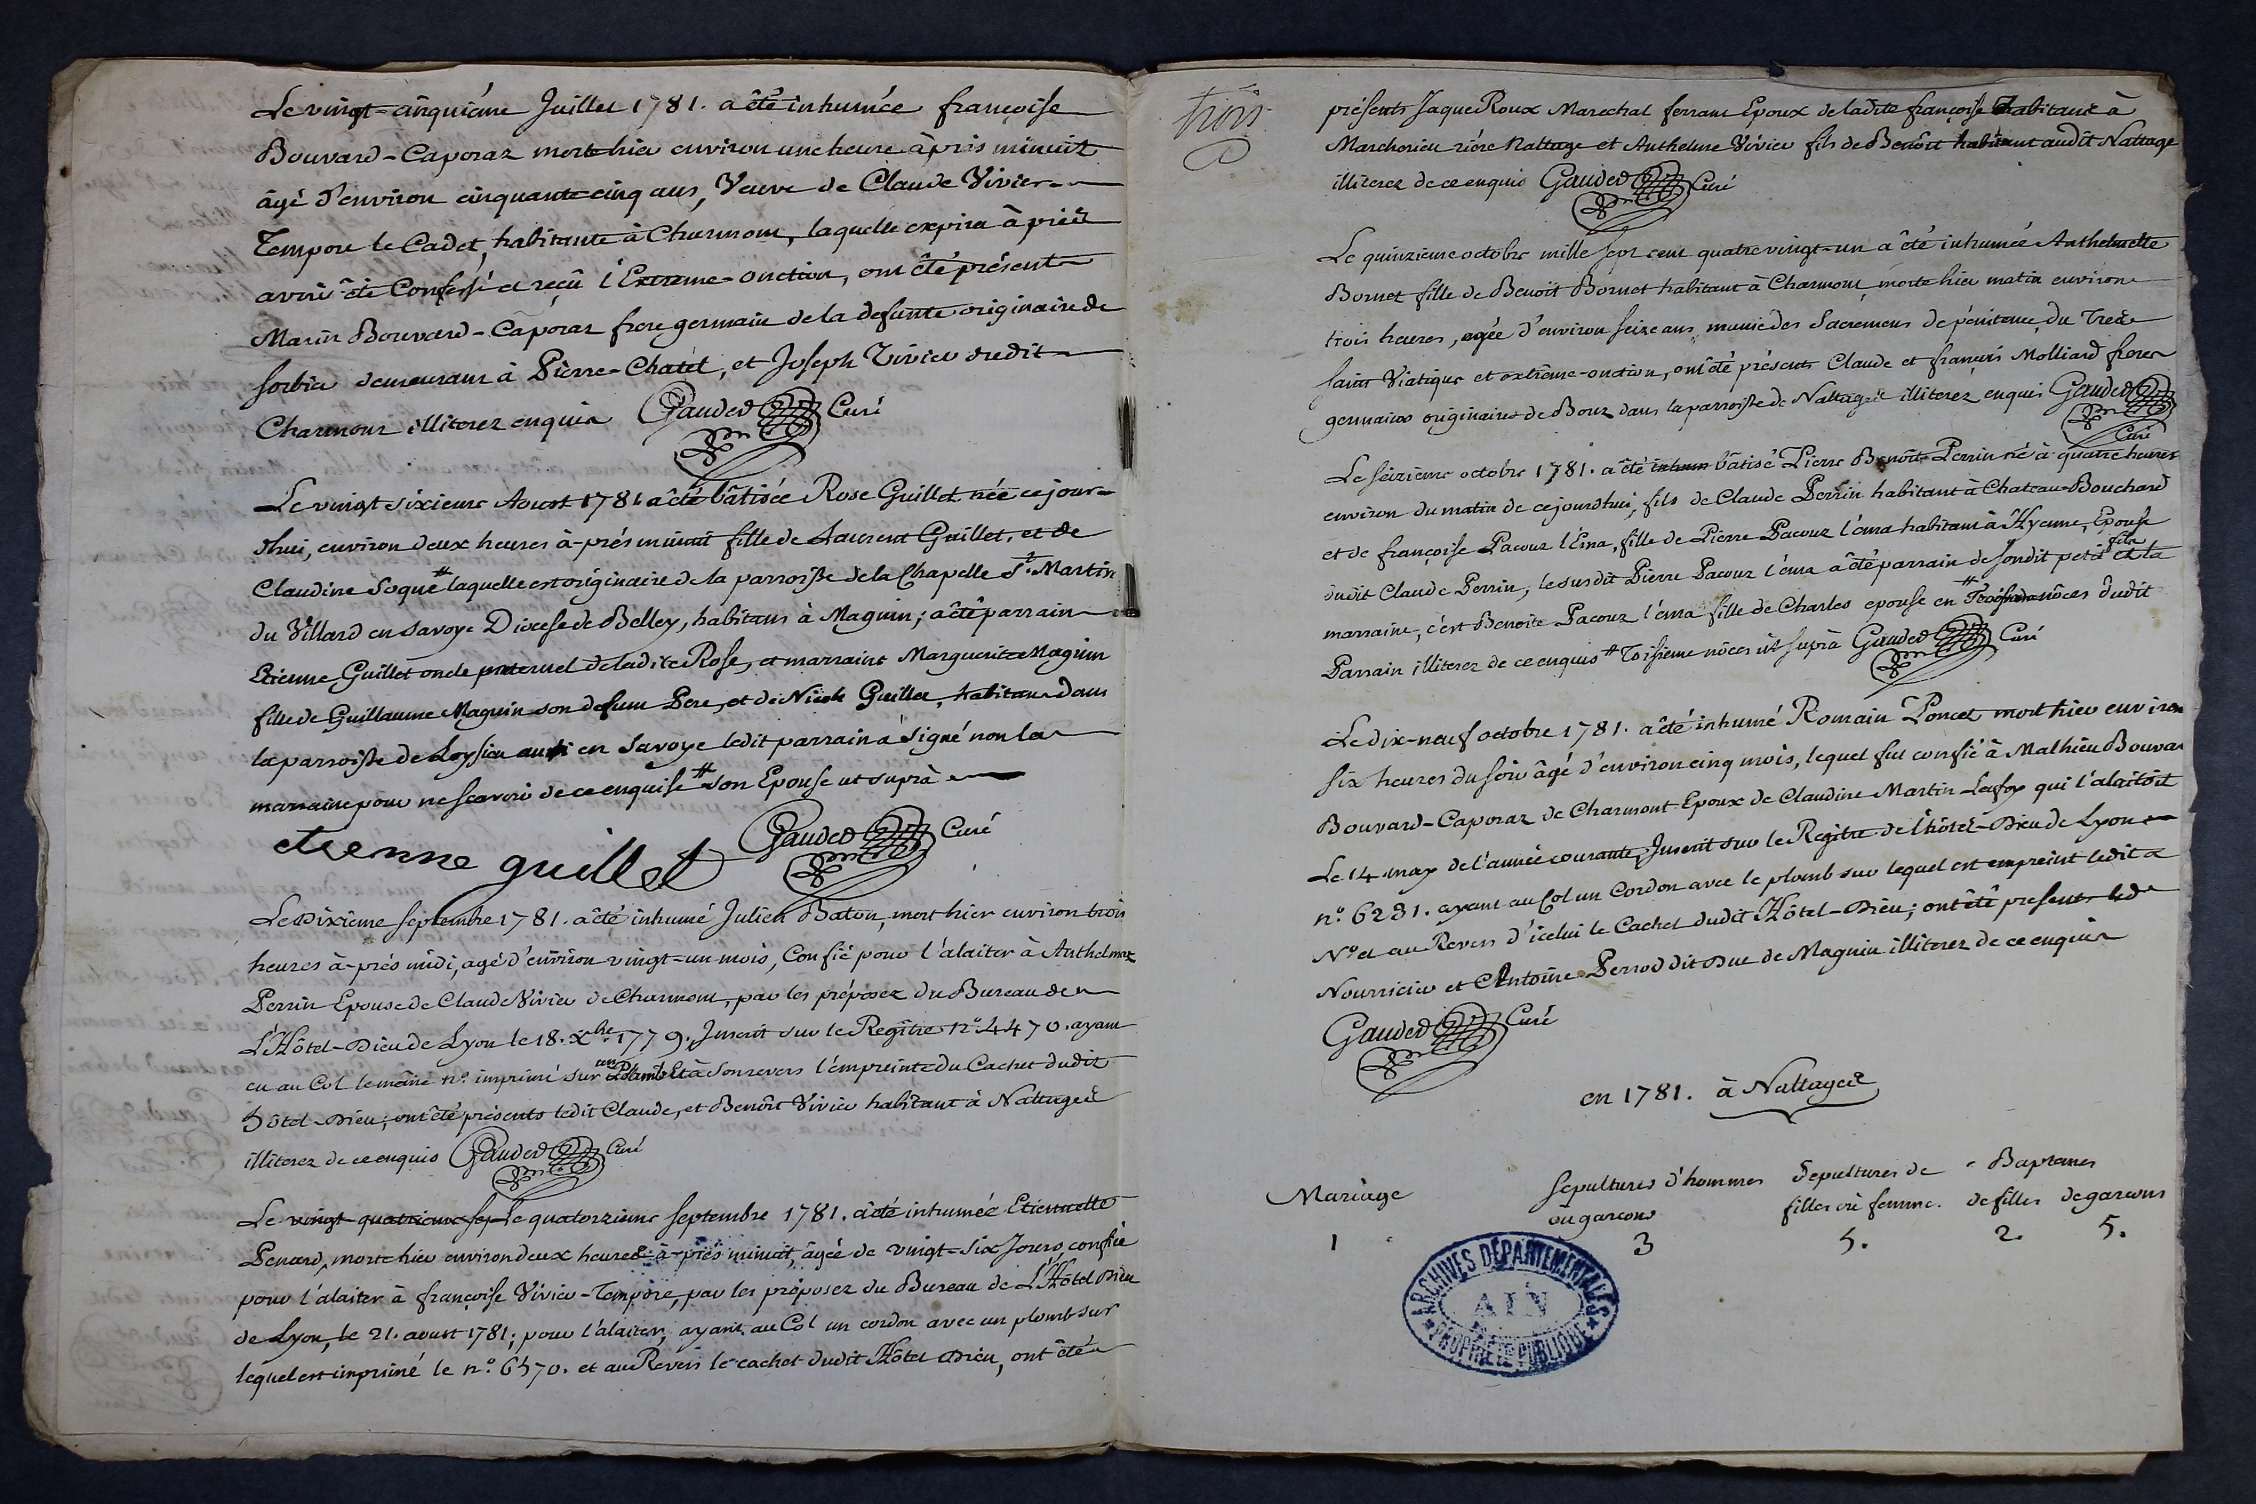 Le vingt-cinquiéme Juillet 1781. a êté inhumée françoise
Bouvard-Caporaz morte hier environ une heure àprès minuit
âgé d'environ cinquante cinq ans, Veuve de Claude Vivier
Tempore le Cadet, habitante à Charmont, laquelle expira àprès
avoir êté Confessé et reçû l'Extreme-onction, ont êté présent
Marin Bouvard-Caporaz frere germain de la defunte originaire de
sorbier demeurant à Pierre-Chatel, et Joseph Vivier dudit
Charmont illiterez enquis Gauded Curé
Le vingt-sixieme Aoust 1781 a êté bâtisée Rose Guillet née ce jour-
d'hui, environ deux heures à-prés minuit fille de Laurent Guillet, et de
Claudine Soque # laquelle est originaire de la parroisse de la Chapelle St. Martin
du Villard en Savoye Diocese de Belley, habitans à Magnin; a êté parrain
Etienne Guillet oncle paternel de ladite Rose, et marraine Marguerite Magnin
fille de Guillaume Magnin son defunt Pere, et de Nicole Guillet, habitant dans
la parroisse de Loysieu aussi en Savoye ledit parrain a signé non la
marraine pour ne sçavoir de ce enquise # son Epouse ut suprà
etienne guillet Gauded Curé
Le Dixiéme septembre 1781. a êté inhumé Julien Baton, mort hier environ trois
heures à-prés midi, agé d'environ vingt-un mois, Confié pour l'alaiter à Anthelmaz
Perrin Epouse de Claude Vivier de Charmont, par les préposez du Bureau de
L'Hôtel-Dieu de Lyon le 18. Xbre. 1779. Inscrit sur le Regître n°. 4470. ayant
eu au Col le même n°. imprimé sur un Plomb Et à son revers l'empreinte du Cachet dudit
hôtel-Dieu; ont êté présents ledit Claude, et Benôit Vivier habitant à Nattages
illiterez de ce enquis Gauded Curé
Le vingt quatrieme sep Le quatorzieme septembre 1781. a êté inhumée Etiennette
Penard, morte hier environ deux heures à-prés minuit, âgée de vingt-six Jours, confiée
pour l'alaiter à françoise Vivier-Tempore, par les préposez du Bureau de L'Hôtel Dieu
de Lyon, le 21. aoust 1781; pour l'alaiter, ayant au Col un cordon avec un plomb sur
lequel est imprimé le n°. 6570. et au Revers le cachet dudit Hôtel Dieu, ont êté
trois
présents Jaque Roux Marechal ferrant Epoux de ladite françoise habitant à
Marchorieu riére Nattage et Anthelme Vivier fils de Benôit habitant audit Nattage
illiterez de ce enquis Gauded Curé
Le quinzieme octobre mille sept cent quatre vingt-un a êté inhumée Anthelmette
Bornet fille de Benoit Bornet habitant à Charmont morte hier matin environ
trois heures, agée d'environ seize ans munie des Sacremens de pénitence, du Trés
saint Viatique et extrême-onction, ont êté présents Claude et françois Molliard freres
germains originaires de Bour dans la parroisse de Nattages illiterez enquis Gauded
Curé
Le seizieme octobre 1781. a êté inhum bâtisé Pierre Benôit Perrin né à quatre heures
environ du matin de cejourd'hui, fils de Claude Perrin habitant à Chateau-Bouchard
et de françoise Pacouz l'Ema, fille de Pierre Pacouz l'ema habitant à Hyenne, Epouse
dudit Claude Perrin, le susdit Pierre Pacouz l'ema a êté parrain de sondit petit fils et la
marraine, c'est Benoite Pacouz l'ema fille de Charles epouse en # nôces dudit
Parrain illiterez de ce enquis # Toisieme nôces ut suprà Gauded Curé
Le dix-neuf octobre 1781. a êté inhumé Romain Poncet mort hier environ
six heures du soir âgé d'environ cinq mois, lequel fut confié à Mathieu Bouvar
Bouvard-Caporaz de Charmont Epoux de Claudine Martin Leafox qui l'alaitoit
Le 14 may de l'année courante, Inscrit sur le Regitre de l'hôtel-Dieu de Lyon
n°. 6231. ayant au Col un Cordon avec le plomb sur lequel est empreint ledit
N°. et au Revers d'icelui le Cachet dudit Hôtel-Dieu; ont êté presents led
Nourricier et Antoine Perrod dit Duc de Magnin illiterez de ce enquis
Gauded Curé
en 1781. à Nattages
Mariage
sepultures d'hommes
ou garcons
Sepultures de
filles ou femme.
Baptemes
de filles de garcons
1 3 5. 2. 5.
ARCHINES DÉPARTEMENTALES
AIN
PROPRIÉTÉ PUBLIQUE